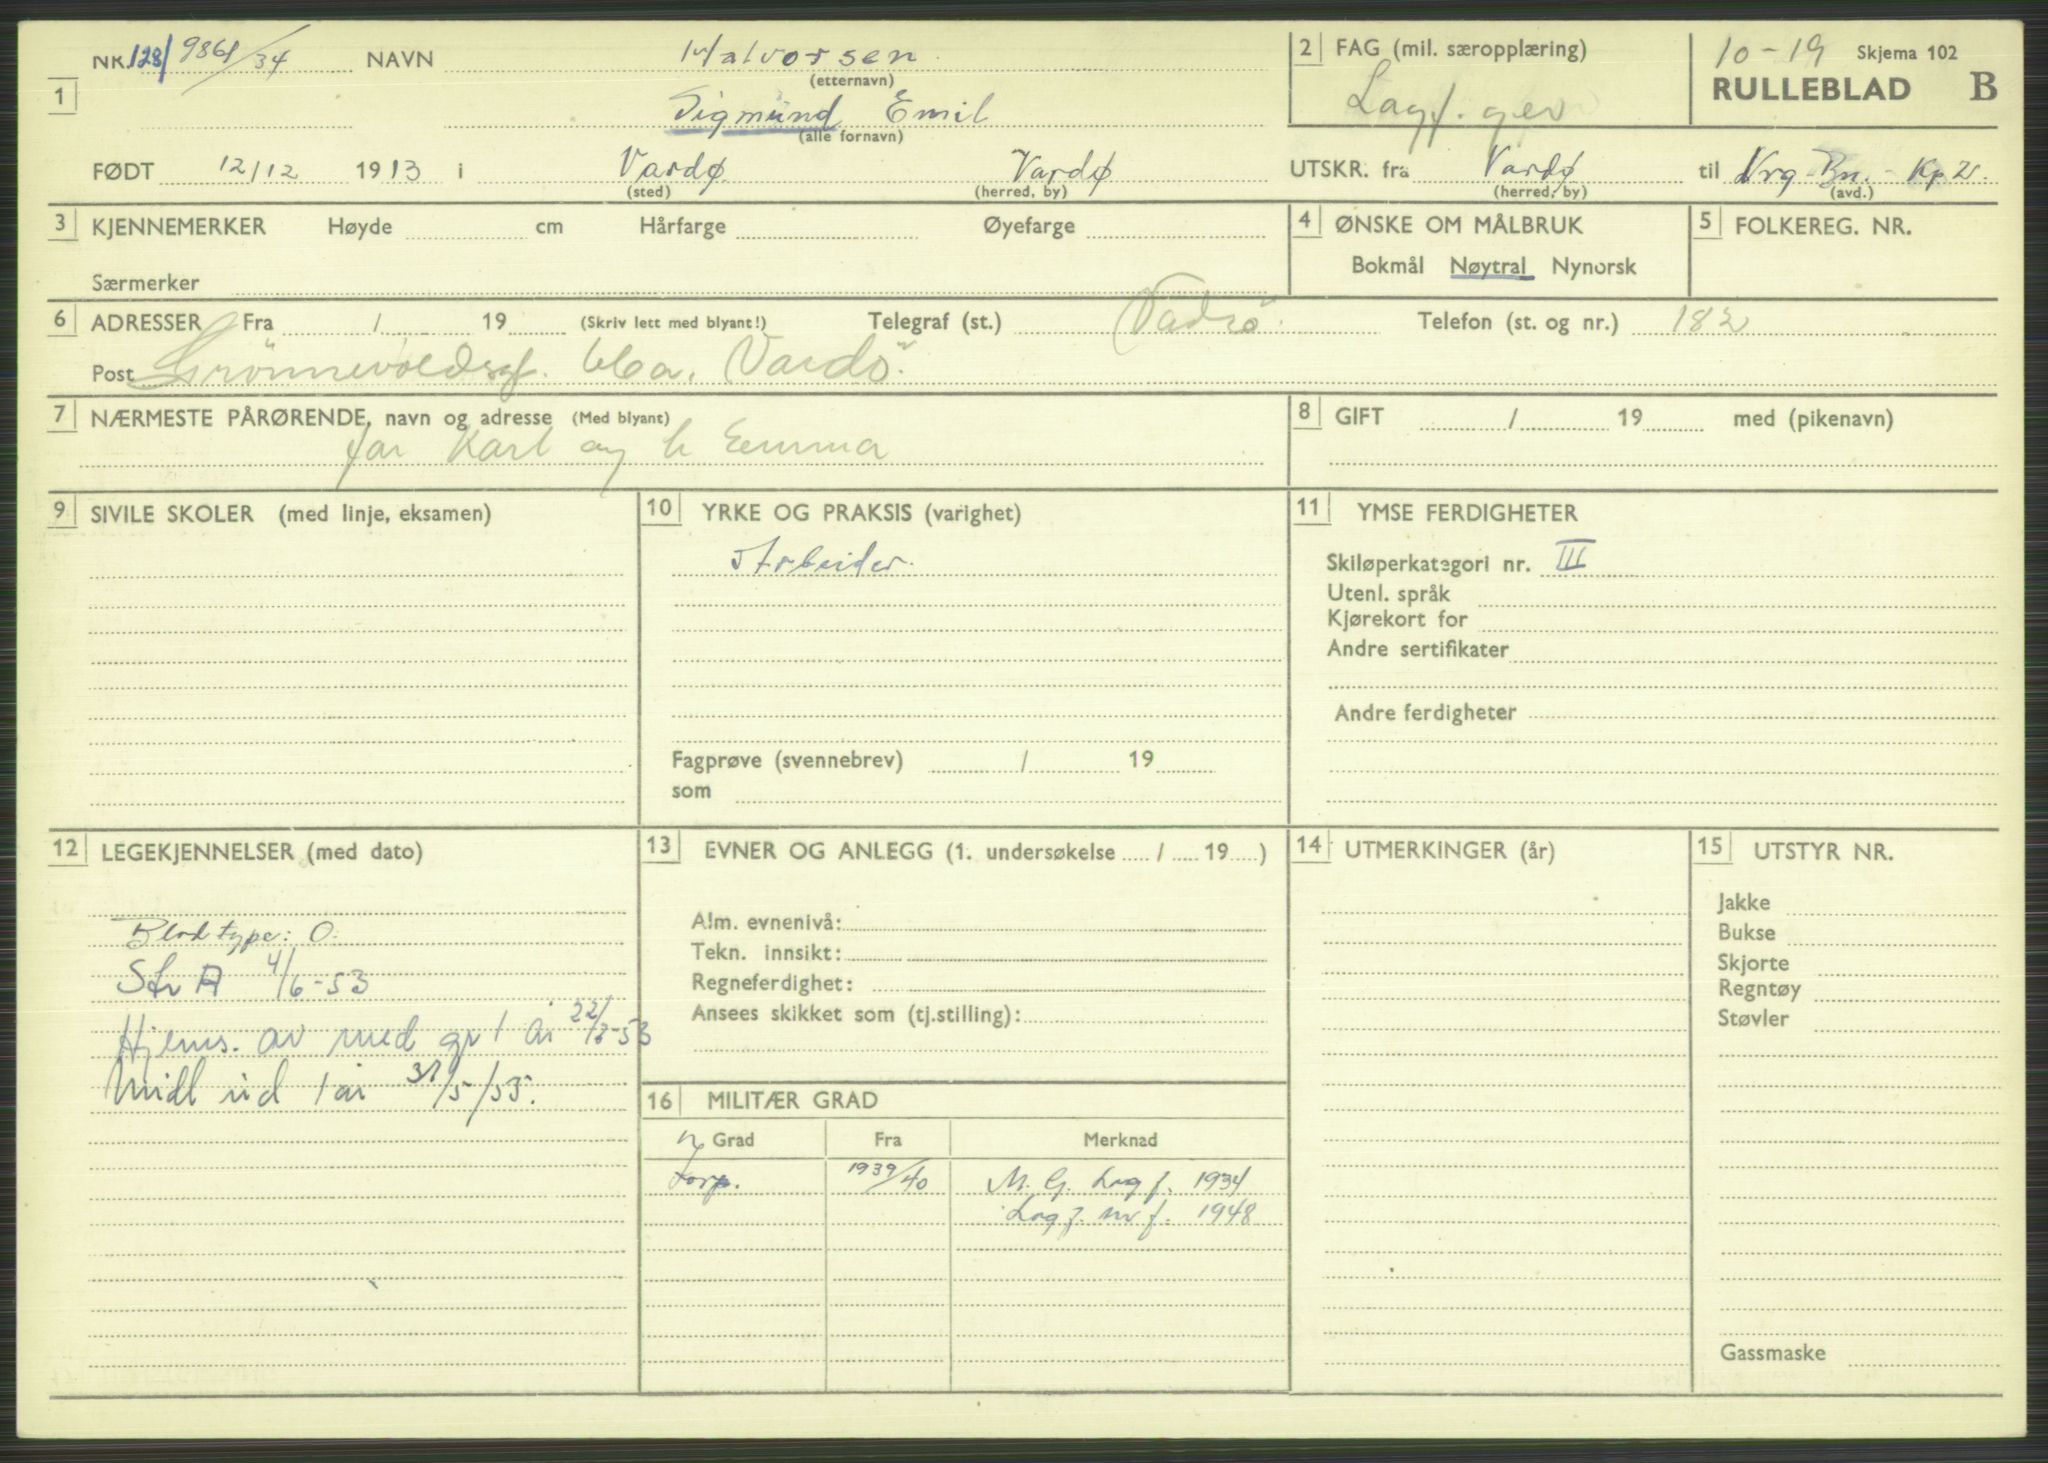 NR. 128/ 9861/34 NAVN Halvorsen
(etternavn)
1
Sigmund Emil
(alle fornavn)
FØDT 12/12 1913 i Vardø Vardø
(sted) (herred, by)
2 FAG (mil. særopplæring)
Lagf. gev
10-19 Skjema 102
RULLEBLAD B
UTSKR. fra Vardø til Vrg-Bn.- Kp 2.
(herred, by) (avd.)
3 KJENNEMERKER Høyde cm Hårfarge Øyefarge
Særmerker
4 ØNSKE OM MÅLBRUK
Bokmål Nøytral Nynorsk
5 FOLKEREG. NR.
6 ADRESSER Fra / 19 (Skriv lett med blyant!) Telegraf (st.) Vadsö. Telefon (st. og nr.) 182
Post Grönnevoldsgt. 66a. Vardö.
7 NÆRMESTE PÅRØRENDE, navn og adresse (Med blyant)
far Karl og h Emma
8 GIFT / 19 med (pikenavn)
9 SIVILE SKOLER (med linje, eksamen)
10 YRKE OG PRAKSIS (varighet)
Arbeider.
Fagprøve (svennebrev) / 19
som
11 YMSE FERDIGHETER
Skiløperkategori nr. III
Utenl. språk
Kjørekort for
Andre sertifikater
Andre ferdigheter
12 LEGEKJENNELSER (med dato)
Blodtype: O.
Str A 4/6-53
Hjems. av med gr 1 år 22/6-53
Midl ud 1 år 31/5/55.
13 EVNER OG ANLEGG (1. undersøkelse / 19 )
Alm. evnenivå:
Tekn. innsikt:
Regneferdighet:
Ansees skikket som (tj.stilling):
14 UTMERKINGER (år)
15 UTSTYR NR.
Jakke
Bukse
Skjorte
Regntøy
Støvler
Gassmaske
16 MILITÆR GRAD
Grad Fra Merknad
korp. 1939/40 M. G. Lag f. 1934
Lag f. 1948